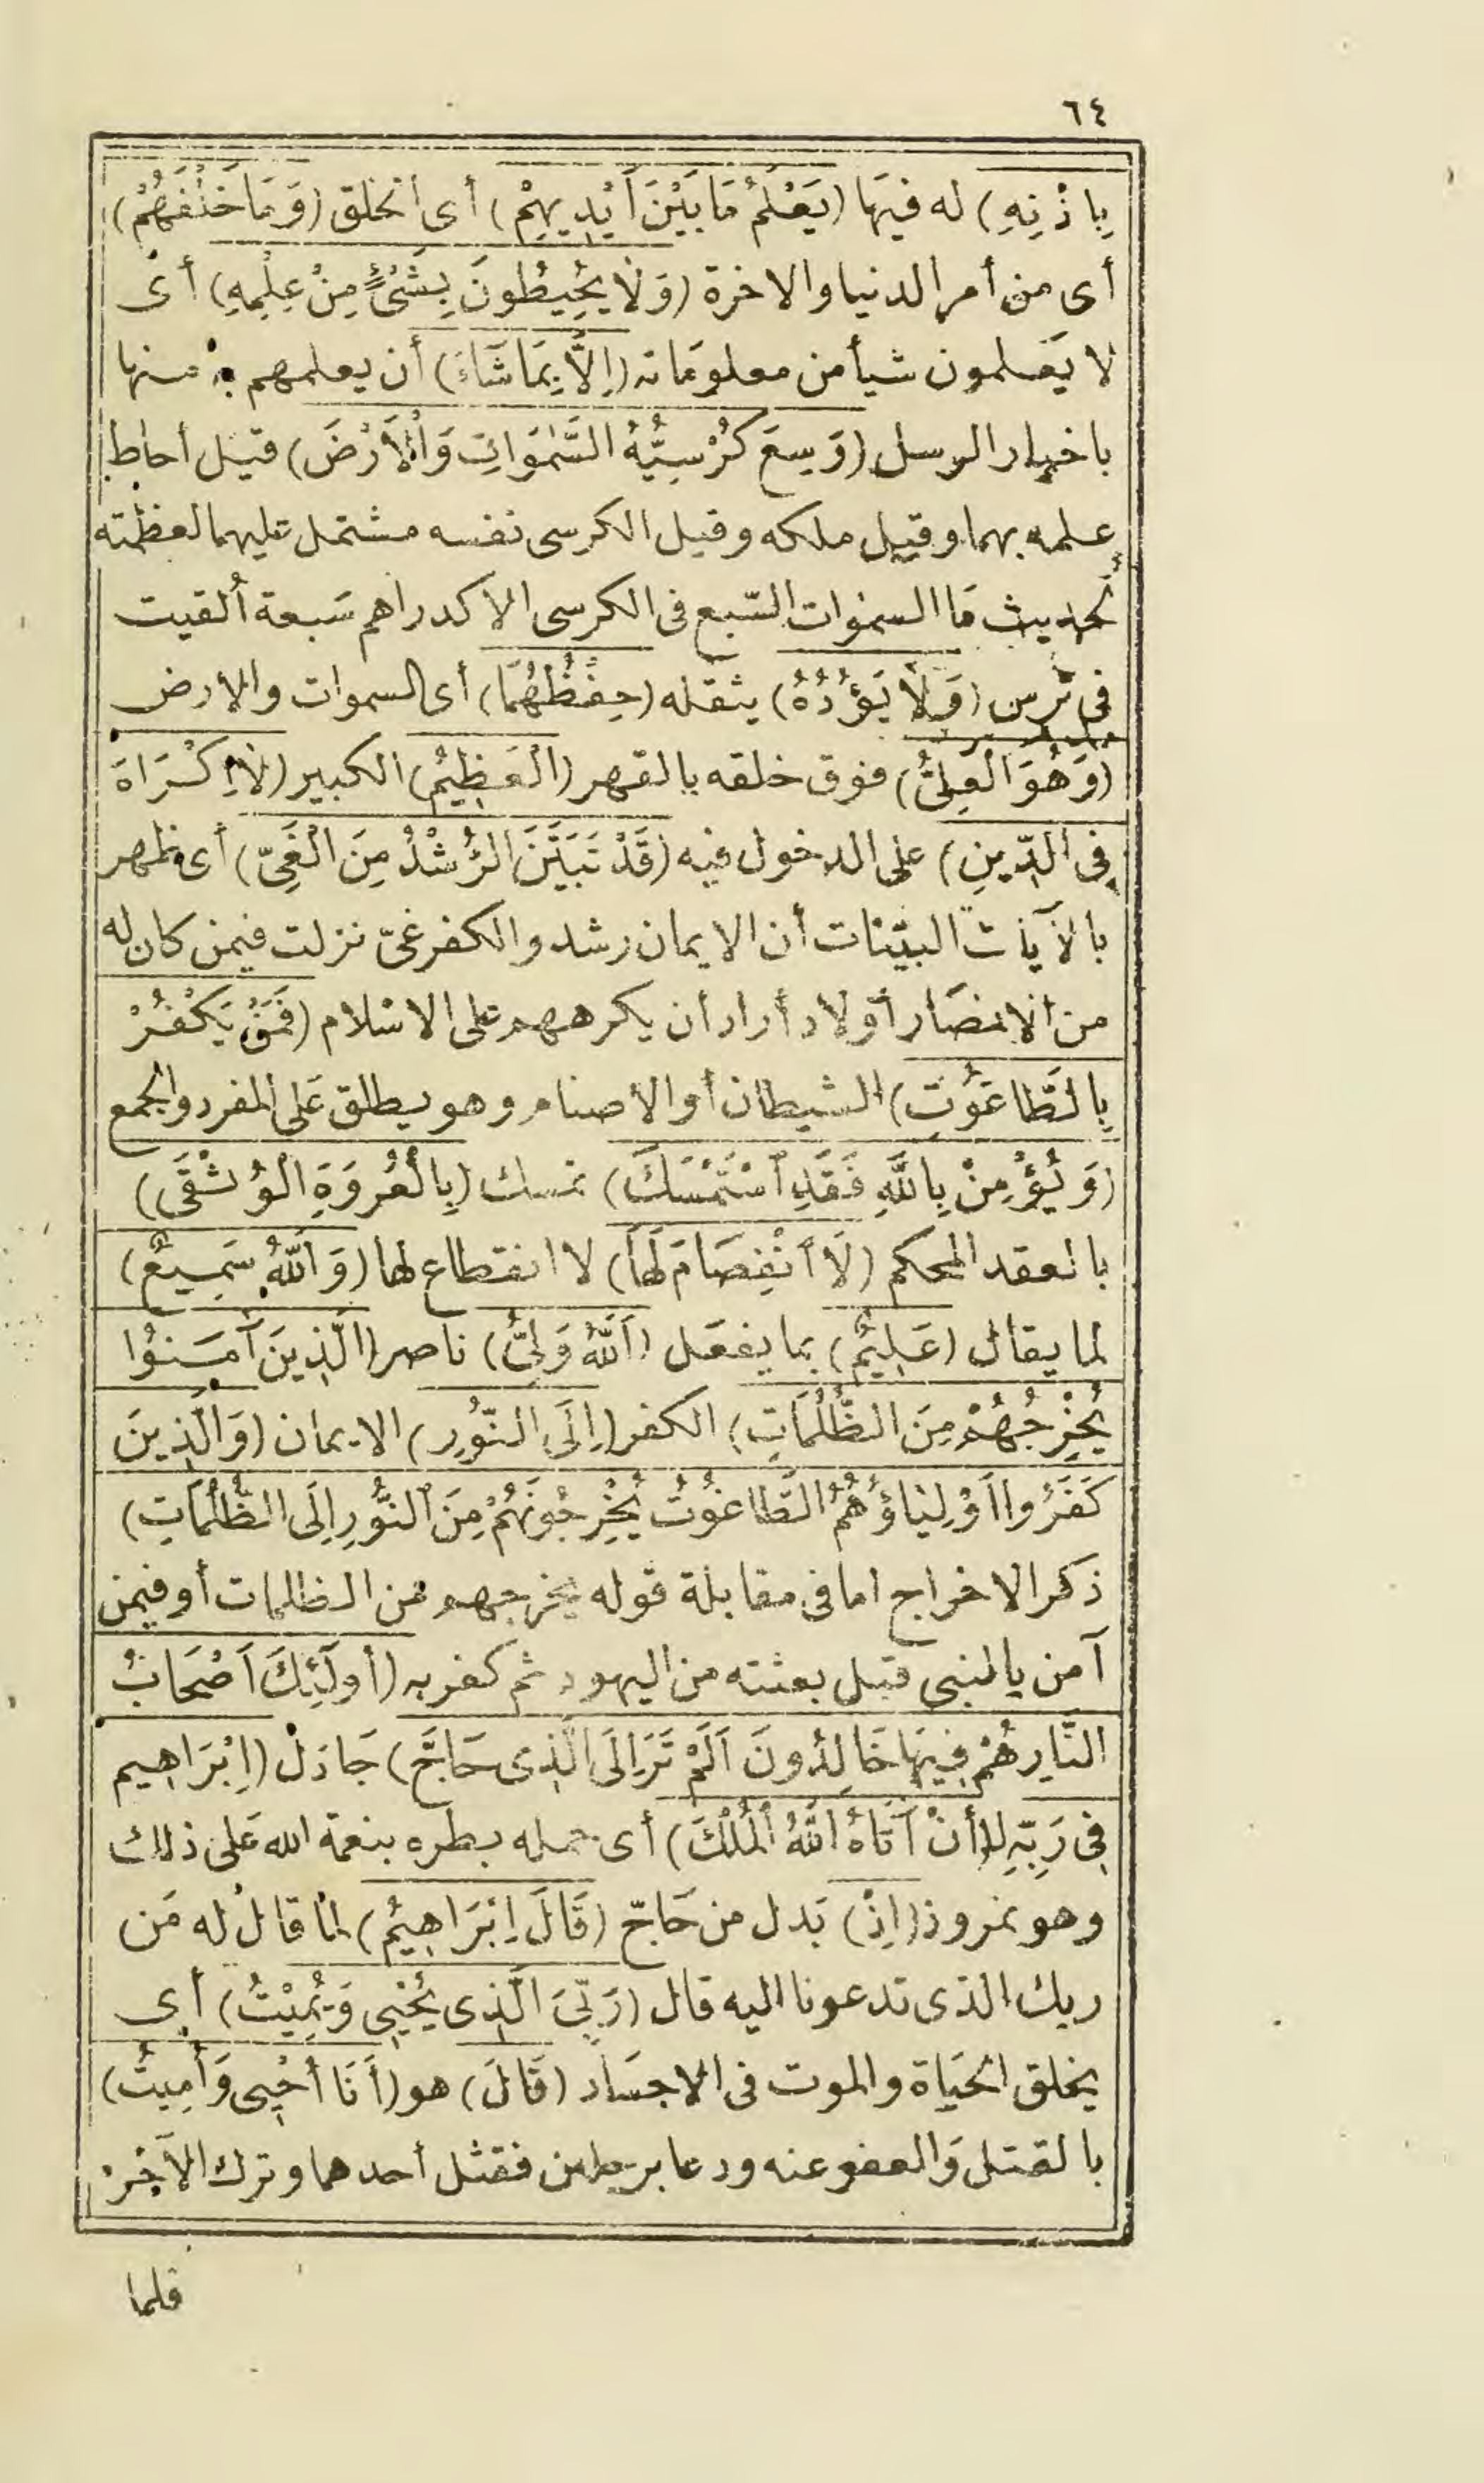 ٦٤
بِاِذْنِهِ) له فيهَا (يَعْلَمُ مَا بَيْنَ اَيْدِيهِمْ) أى الخلق (وَمَا خَلْفَهُمْ)
أى من أمر الدنيا والاخرة (وَلَا يُحِيطُونَ بِشَىْءٍ مِنْ عِلْمِهِ) أى
لا يَعلمون شيأ من معلومَاته (اِلَّا بِمَا شَاءَ) أن يعلمهم به منها
باخبار الرسل (وَسِعَ كُرْسِيُّهُ السَّمٰوَاتِ وَالْاَرْضَ) قيل أحاط
علمه بهما وقيل ملكه وقيل الكرسى نفسه مشتمل عليهما لعظمته
لحديث مَا السموات السّبع فى الكرسى الا كدراهم سَبعة اُلقيت
فى تُرس (وَلَا يَؤُدُهُ) يثقله (حِفْظُهُمَا) أى السموات والارض
(وَهُوَ الْعَلِىُّ) فوق خلقه بالقهر (الْعَظِيْمُ) الكبير (لَا اِكْرَاهَ
فِى الدِّينِ) على الدخول فيه (قَدْ تَبَيَّنَ الرُّشْدُ مِنَ الْغَىِّ) أى ظهر
بالآيات البيّنات أن الايمان رشد والكفر غىّ نزلت فيمن كان له
من الانصَار أولاد أراد أن يكرههم على الاسْلام (فَمَنْ يَكْفُرْ
بِالطَّاغُوتِ) الشيطان أو الأصنام وهو يطلق عَلى المفرد والجمع
(وَيُؤْمِنْ بِاللَّهِ فَقَدِ اسْتَمْسَكَ) تمسك (بِالْعُرْوَةِ الْوُثْقَى)
بالعقد المحكم (لَا انْفِصَامَ لَهَا) لا انقطاع لها (وَاللَّهُ سَمِيعٌ)
لما يقال (عَلِيْمٌ) بما يفعَل (اَللَّهُ وَلِىُّ) ناصر (الَّذِينَ آمَنُوا
يُخْرِجُهُمْ مِنَ الظُّلُمَاتِ) الكفر (اِلَى النُّورِ) الايمان (وَالَّذِينَ
كَفَرُوا اَوْلِيَاؤُهُمُ الطَّاغُوْتُ يُخْرِجُوْنَهُمْ مِنَ النُّورِ اِلَى الظُّلُمَاتِ)
ذكر الاخراج اما فى مقابلة قوله يخرجهم من الظلمات أو فيمن
آمن بالنبى قبل بعثته من اليهود ثم كفر به (أولَئِكَ اَصْحَابُ
النَّارِ هُمْ فِيهَا خَالِدُونَ اَلَمْ تَرَ اِلَى الَّذِى حَاجَّ) جَادَلَ (اِبْرَاهِيم
فِى رَبِّهِ) لـ(أَنْ آتَاهُ اللَّهُ الْمُلْكَ) أى حمله بطره بنعمة الله عَلى ذلك
وهو نمروذ (اِذْ) بَدل من حَاجّ (قَالَ اِبْرَاهِيْمُ) لما قال له مَن
ربك الذى تدعونا اليه قال (رَبِّىَ الَّذِى يُحْيِى وَيُمِيْتُ) أى
يخلق الحَياة والموت فى الاجسَاد (قَالَ) هو (أَنَا أُحْيِى وَأُمِيتُ)
بالقتل وَالعفو عنه ودعا برجلين فقتل أحدهما وترك الآخَرْ
فلما